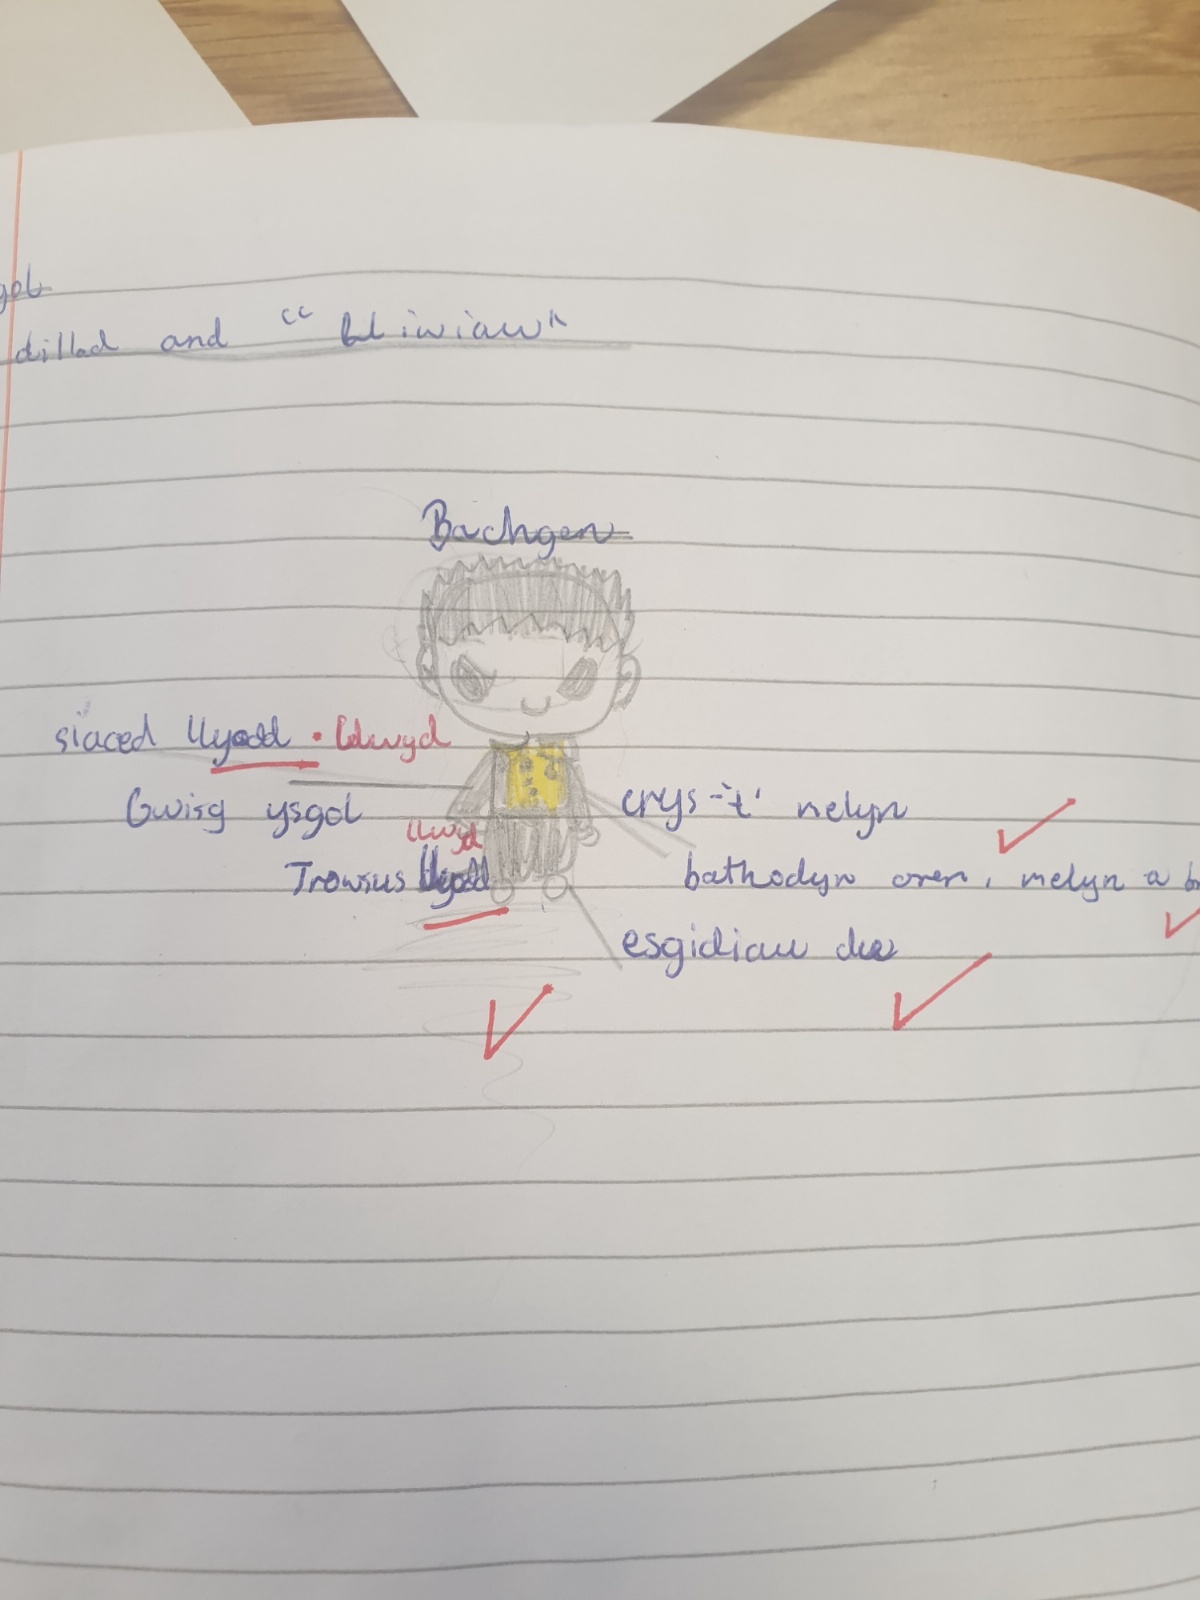 dillad and "lliwiau"
Bachgen
siaced llyodd • llwyd
Gwisg ysgol
llwyd
Trowsus
crys-'t' melyn
bathodyn oren, melyn a
esgidiau du